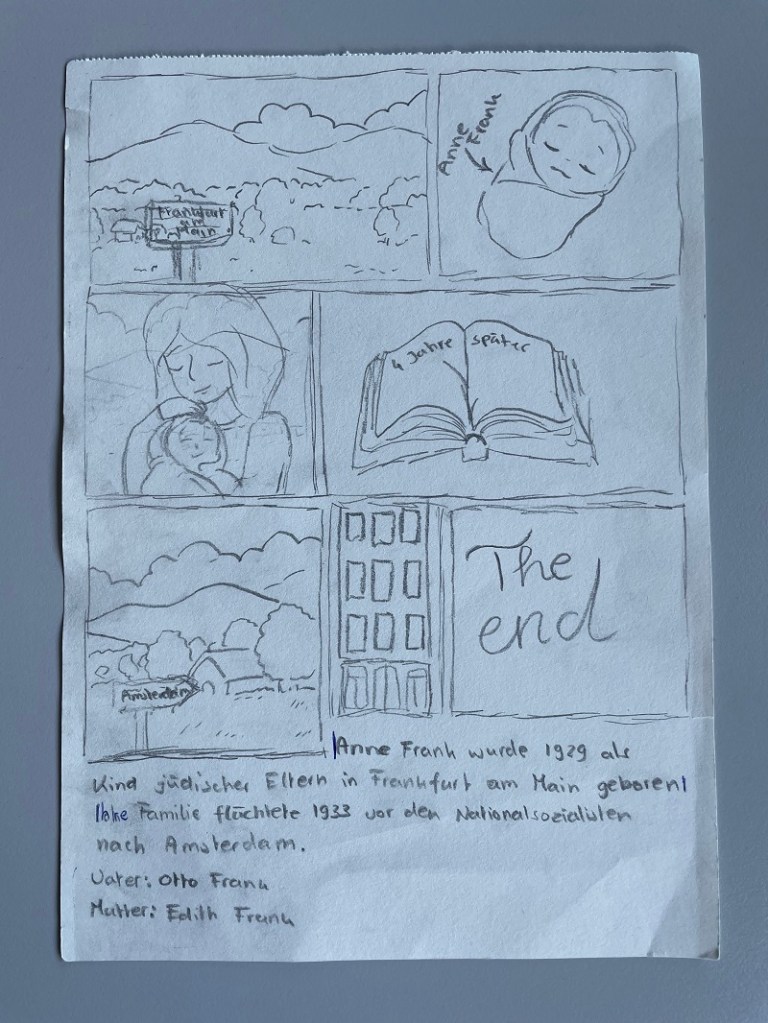 Frankfurt
am
Main
Anne
Frank
4 Jahre später
Amsterdam
The
end
Anne Frank wurde 1929 als
Kind jüdischer Eltern in Frankfurt am Main geboren.
Ihre Familie flüchtete 1933 vor den Nationalsozialisten
nach Amsterdam.
Vater: Otto Frank
Mutter: Edith Frank